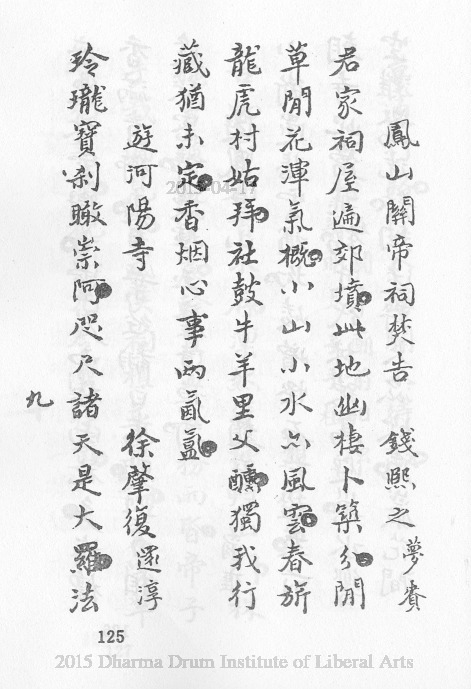 鳳山關帝祠焚告 錢熙之 夢賚
君家祠屋遍郊墳此地幽棲卜築分閒
草閒花渾氣概小山小水亦風雲春旂
龍虎村姑拜社鼓牛羊里父醺獨我行
藏猶未定香烟心事兩氤氳
遊河陽寺 徐肇復 還淳
玲瓏寶剎瞰崇阿咫尺諸天是大羅法
九
125
2015-04-17
2015 Dharma Drum Institute of Liberal Arts